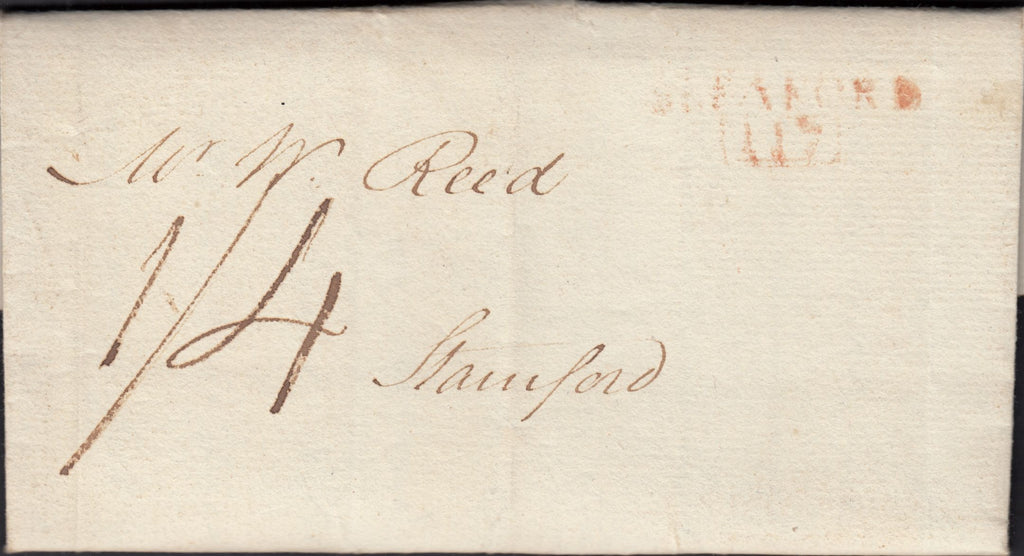 SLEAFORD
117
Mr. W. Reed
1/4
Stamford